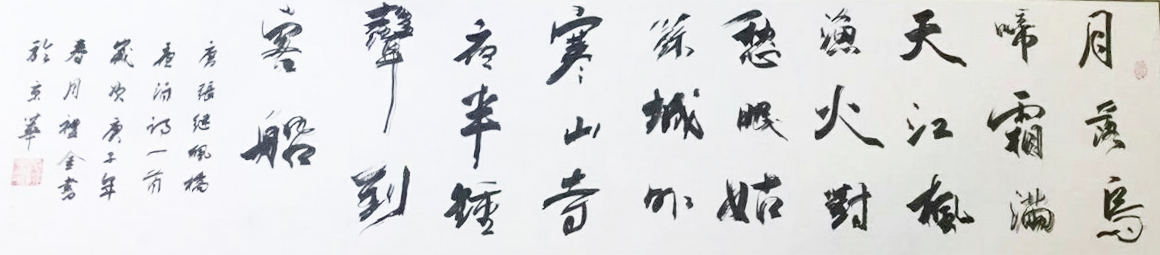 月落烏
啼霜滿
天江楓
漁火對
愁眠姑
蘇城外
寒山寺
夜半鐘
聲到
客船
唐張繼楓橋
夜泊詩一首
歲次庚子年
春月禮金書
於京華